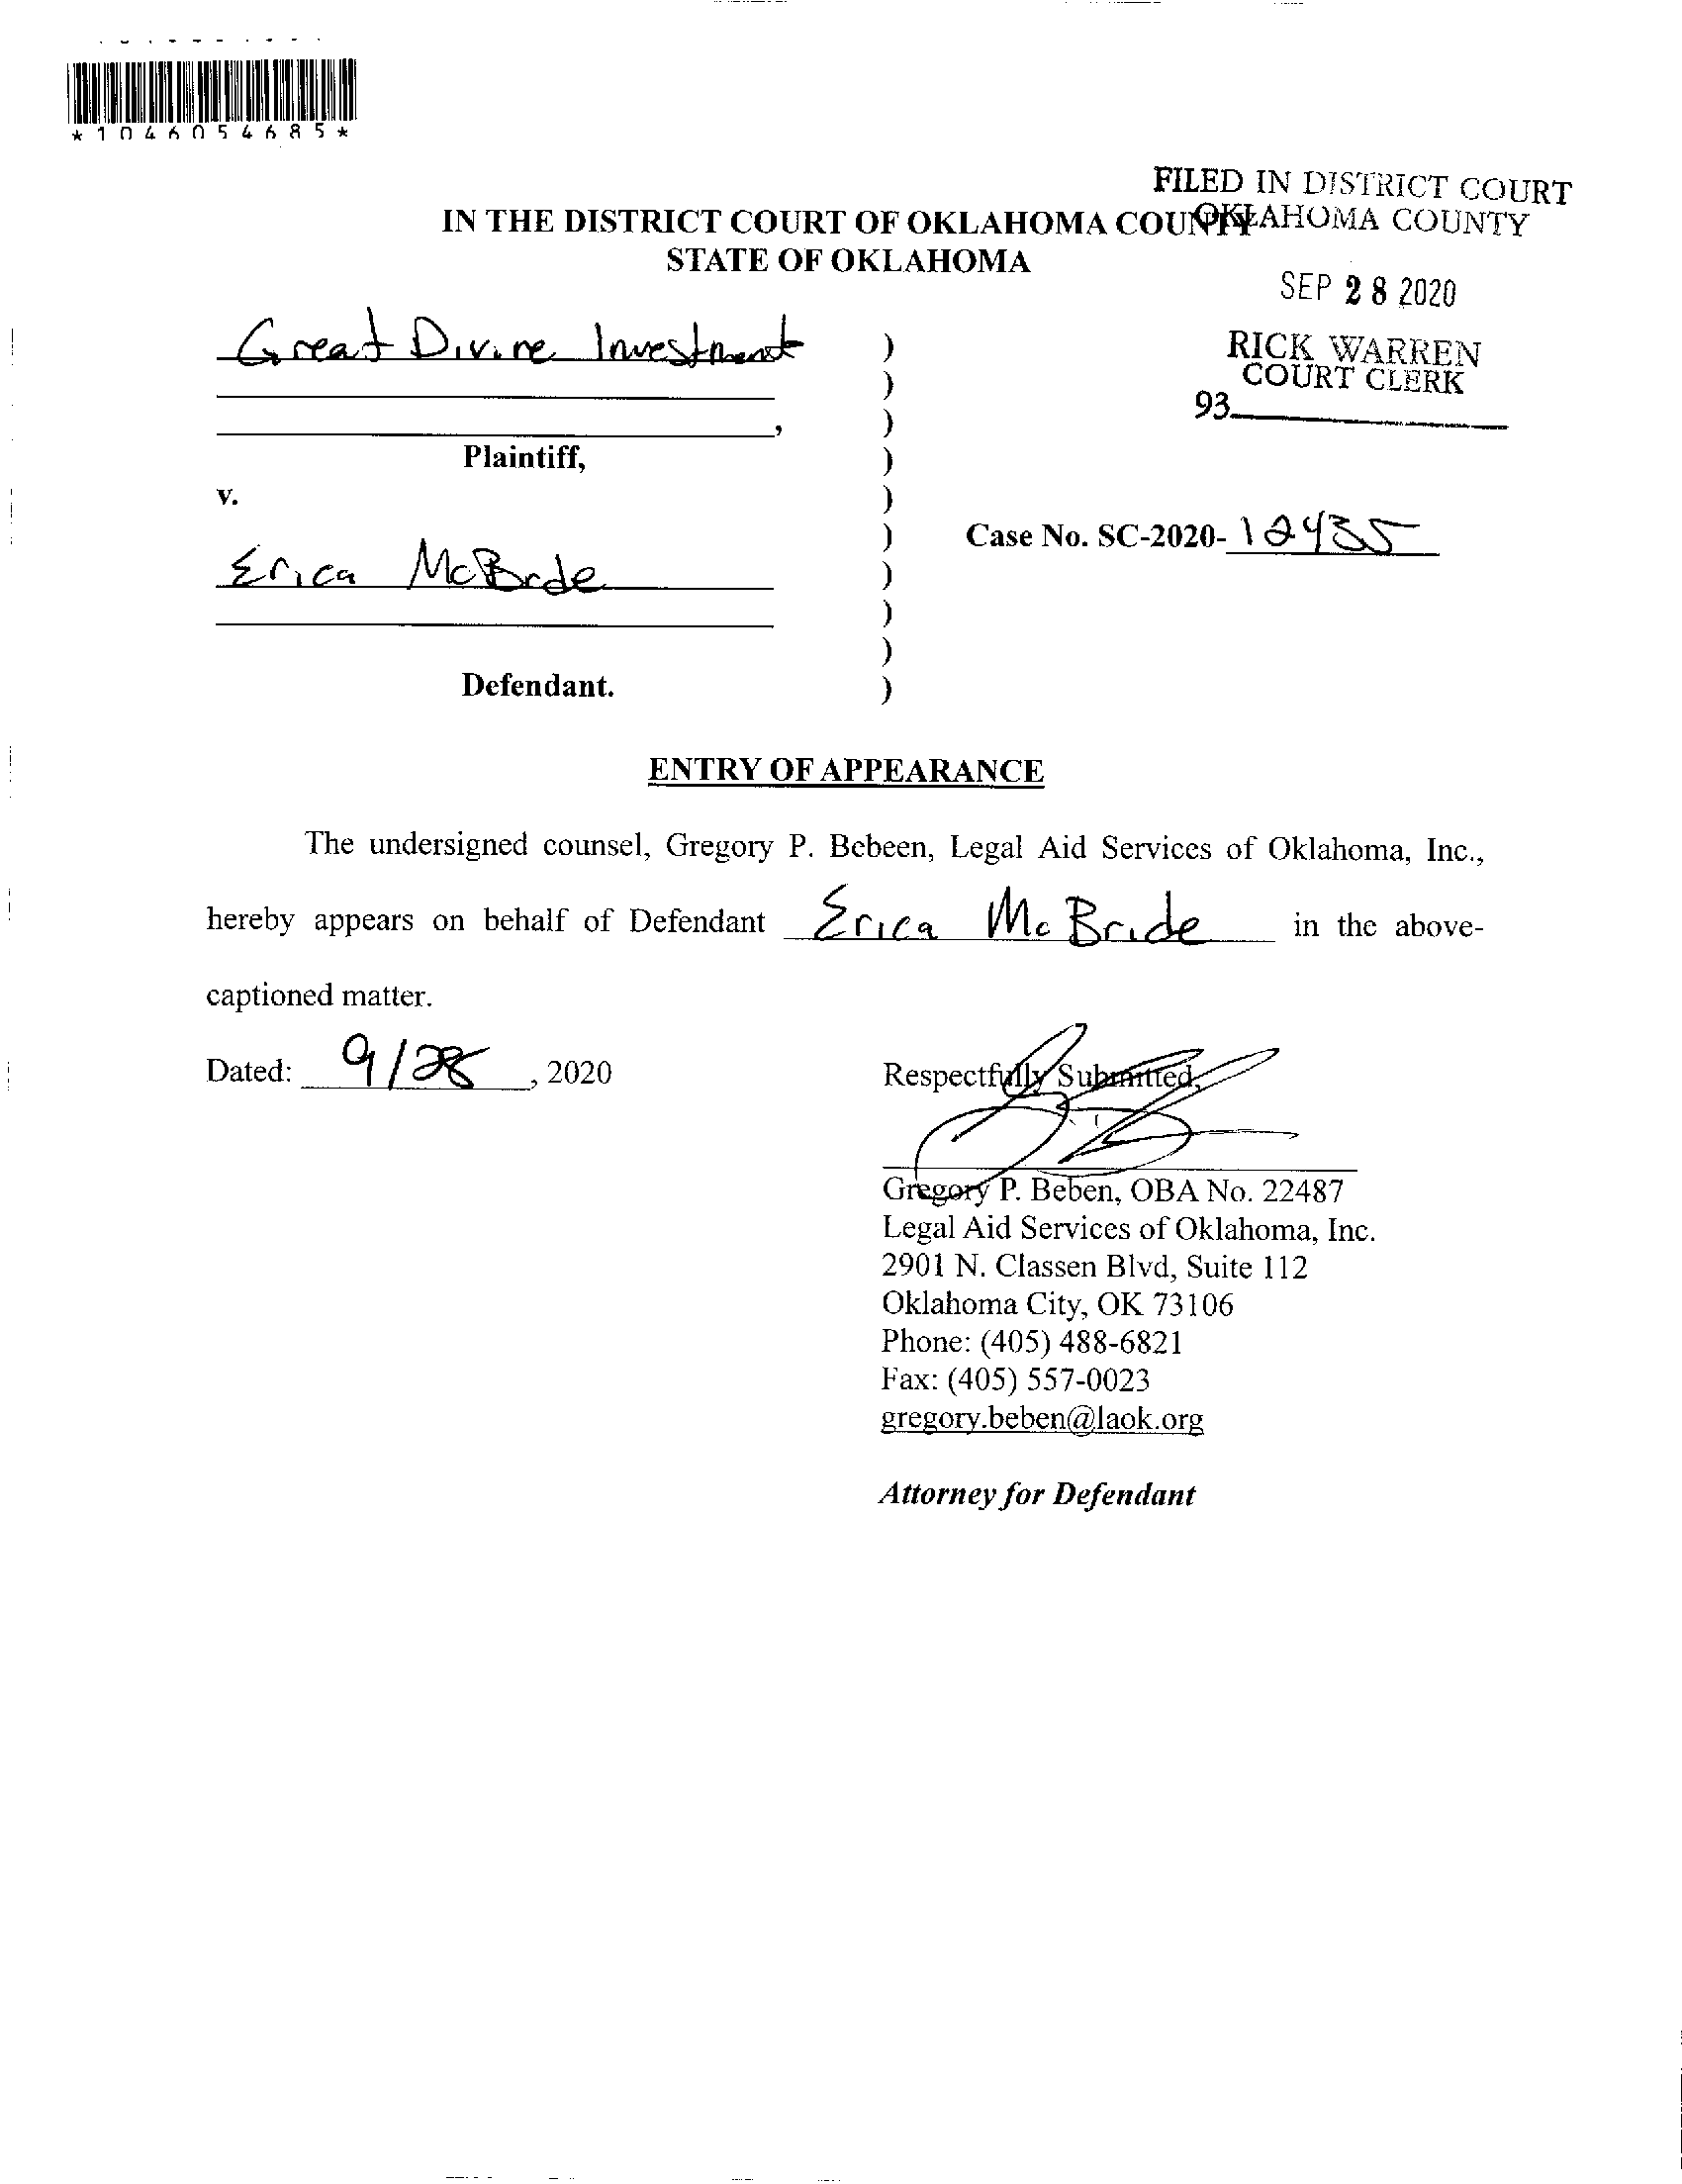 *1046054685*
FILED IN DISTRICT COURT
OKLAHOMA COUNTY
IN THE DISTRICT COURT OF OKLAHOMA COUNTY
STATE OF OKLAHOMA
SEP 28 2020
RICK WARREN
COURT CLERK
93
Great Divine Investment )
)
, )
Plaintiff, )
v. )
) Case No. SC-2020- 12435
Erica McBrde )
)
)
Defendant. )
ENTRY OF APPEARANCE
The undersigned counsel, Gregory P. Bebeen, Legal Aid Services of Oklahoma, Inc.,
hereby appears on behalf of Defendant Erica McBride in the above-
captioned matter.
Dated: 9/28, 2020
Respectfully Submitted,
Gregory P. Beben, OBA No. 22487
Legal Aid Services of Oklahoma, Inc.
2901 N. Classen Blvd, Suite 112
Oklahoma City, OK 73106
Phone: (405) 488-6821
Fax: (405) 557-0023
gregory.beben@laok.org
Attorney for Defendant